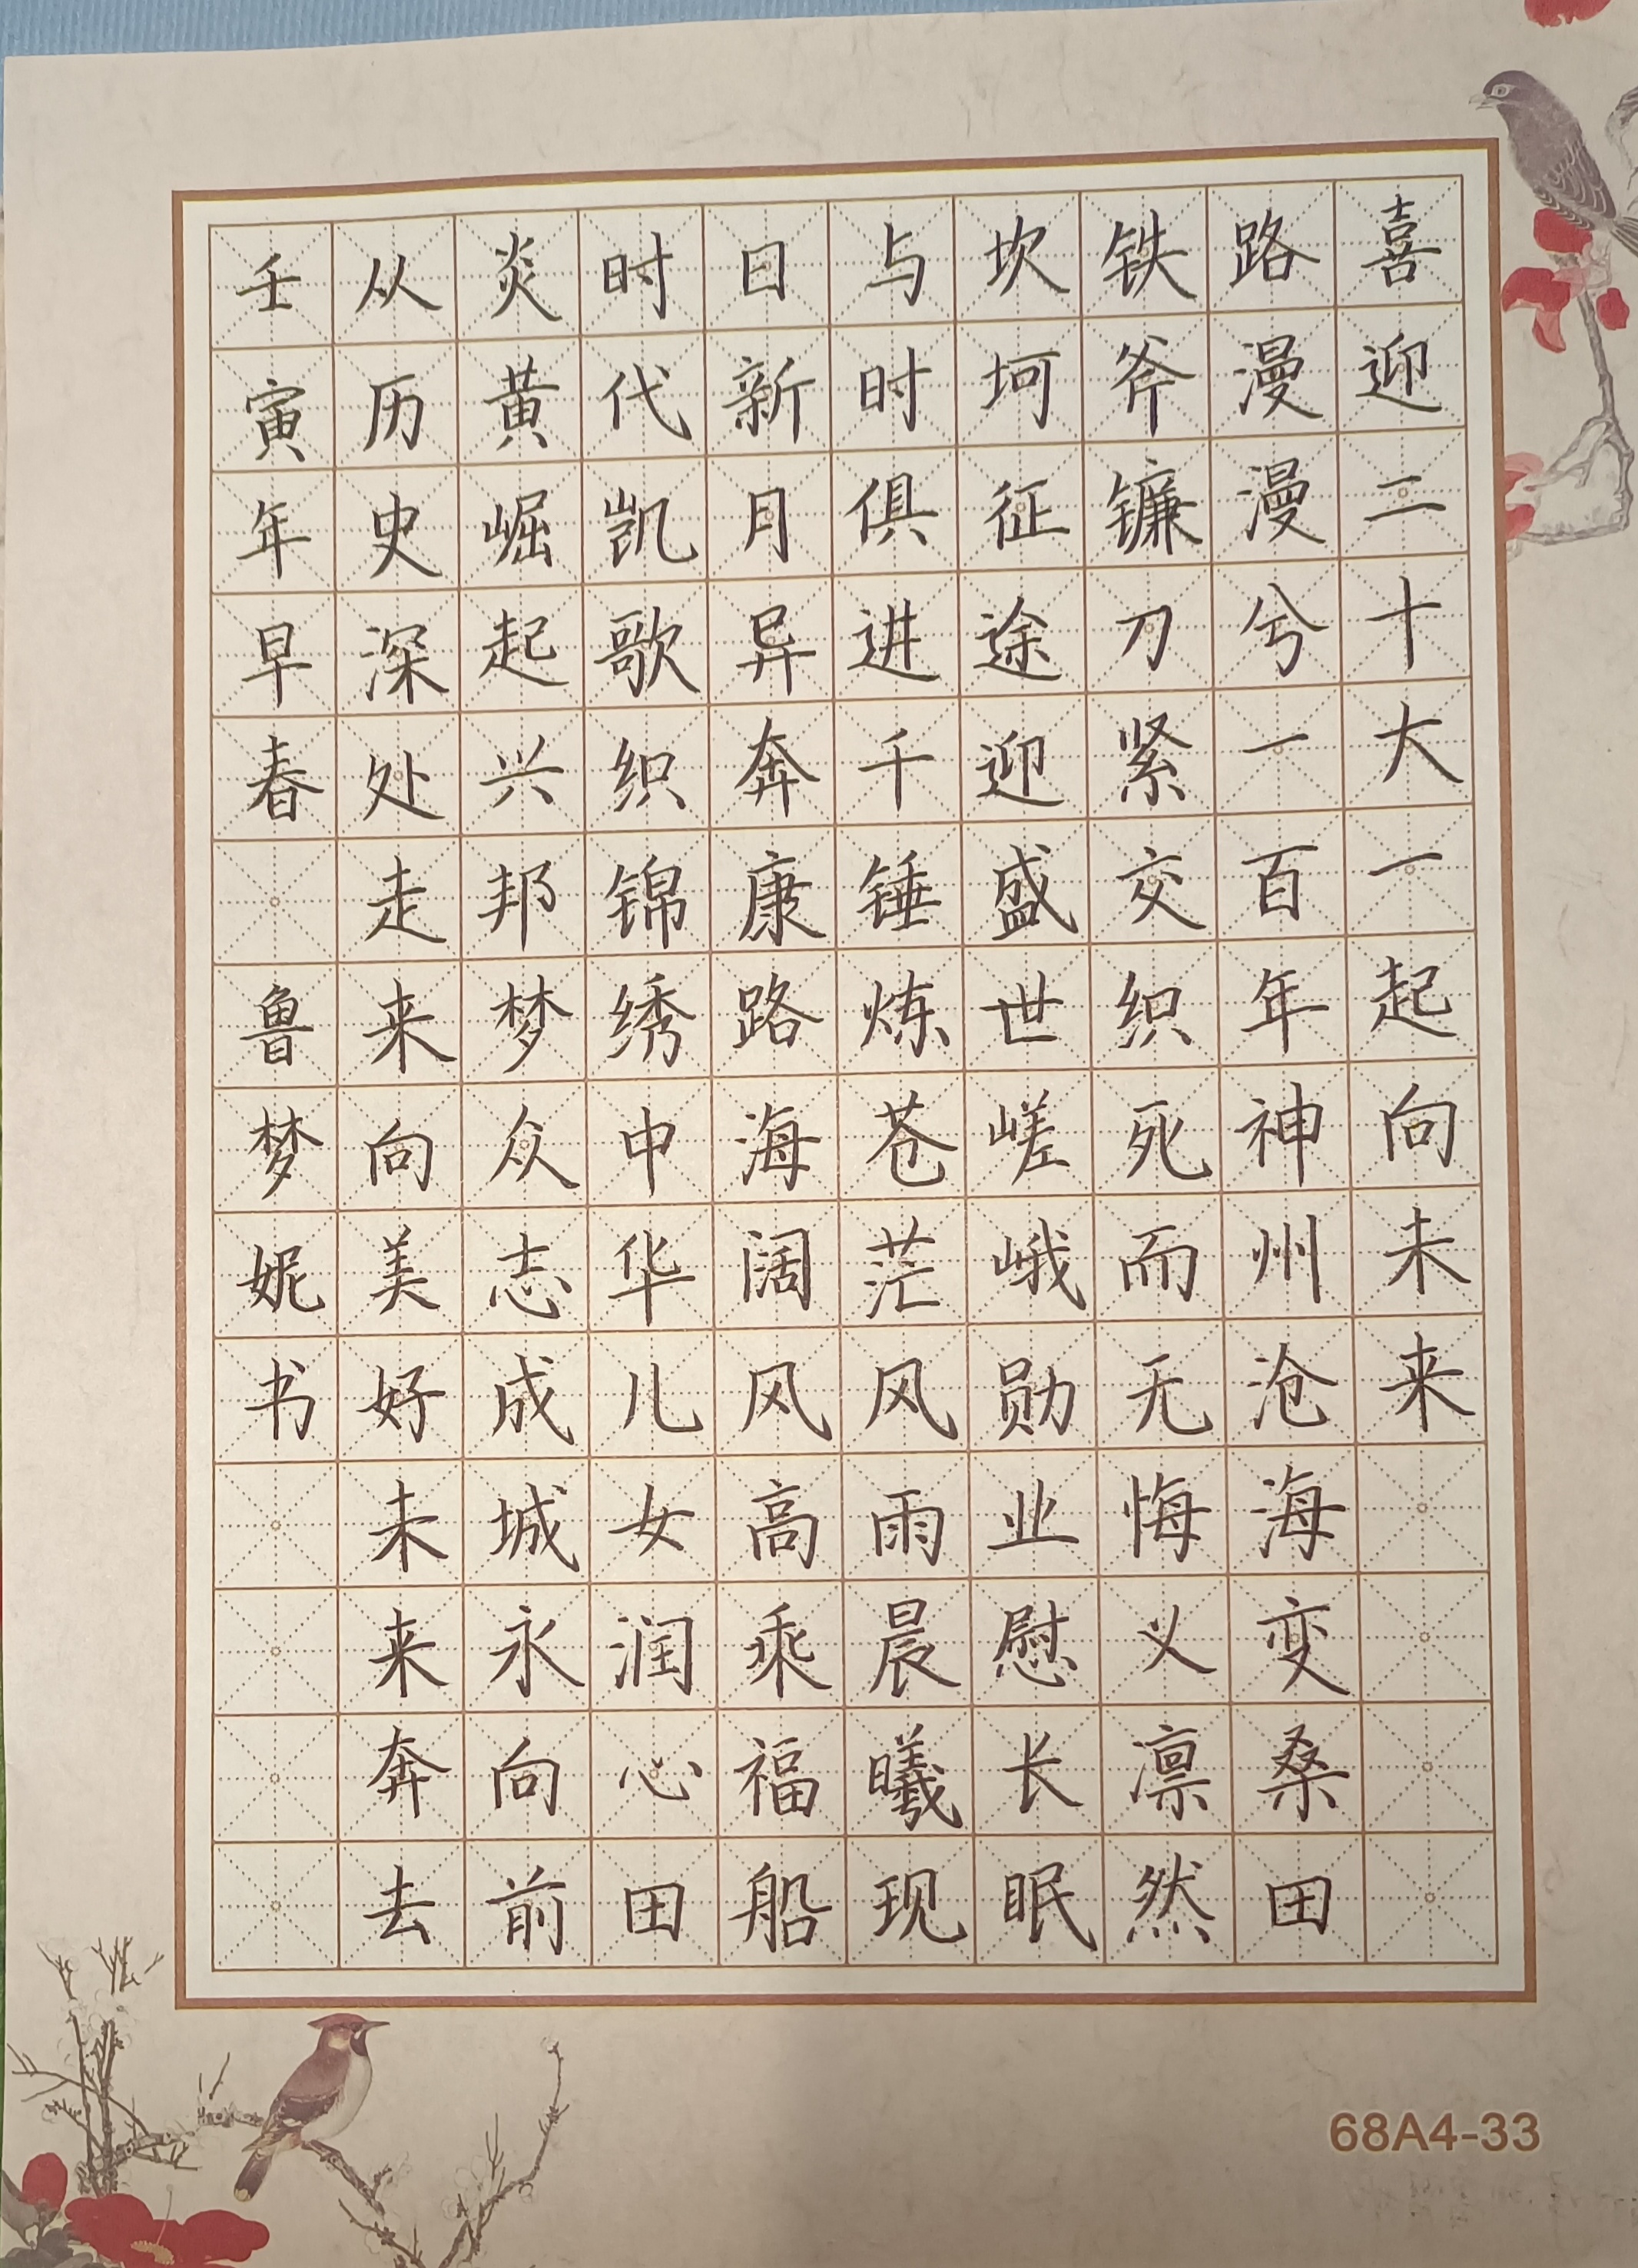 喜迎二十大一起向未来
路漫漫兮一百年神州沧海变桑田
铁斧镰刀紧交织死而无悔义凛然
坎坷征途迎盛世嵯峨勋业慰长眠
与时俱进千锤炼苍茫风雨晨曦现
日新月异奔康路海阔风高乘福船
时代凯歌织锦绣中华儿女润心田
炎黄崛起兴邦梦众志成城永向前
从历史深处走来向美好未来奔去
壬寅年早春 鲁梦妮书
68A4-33